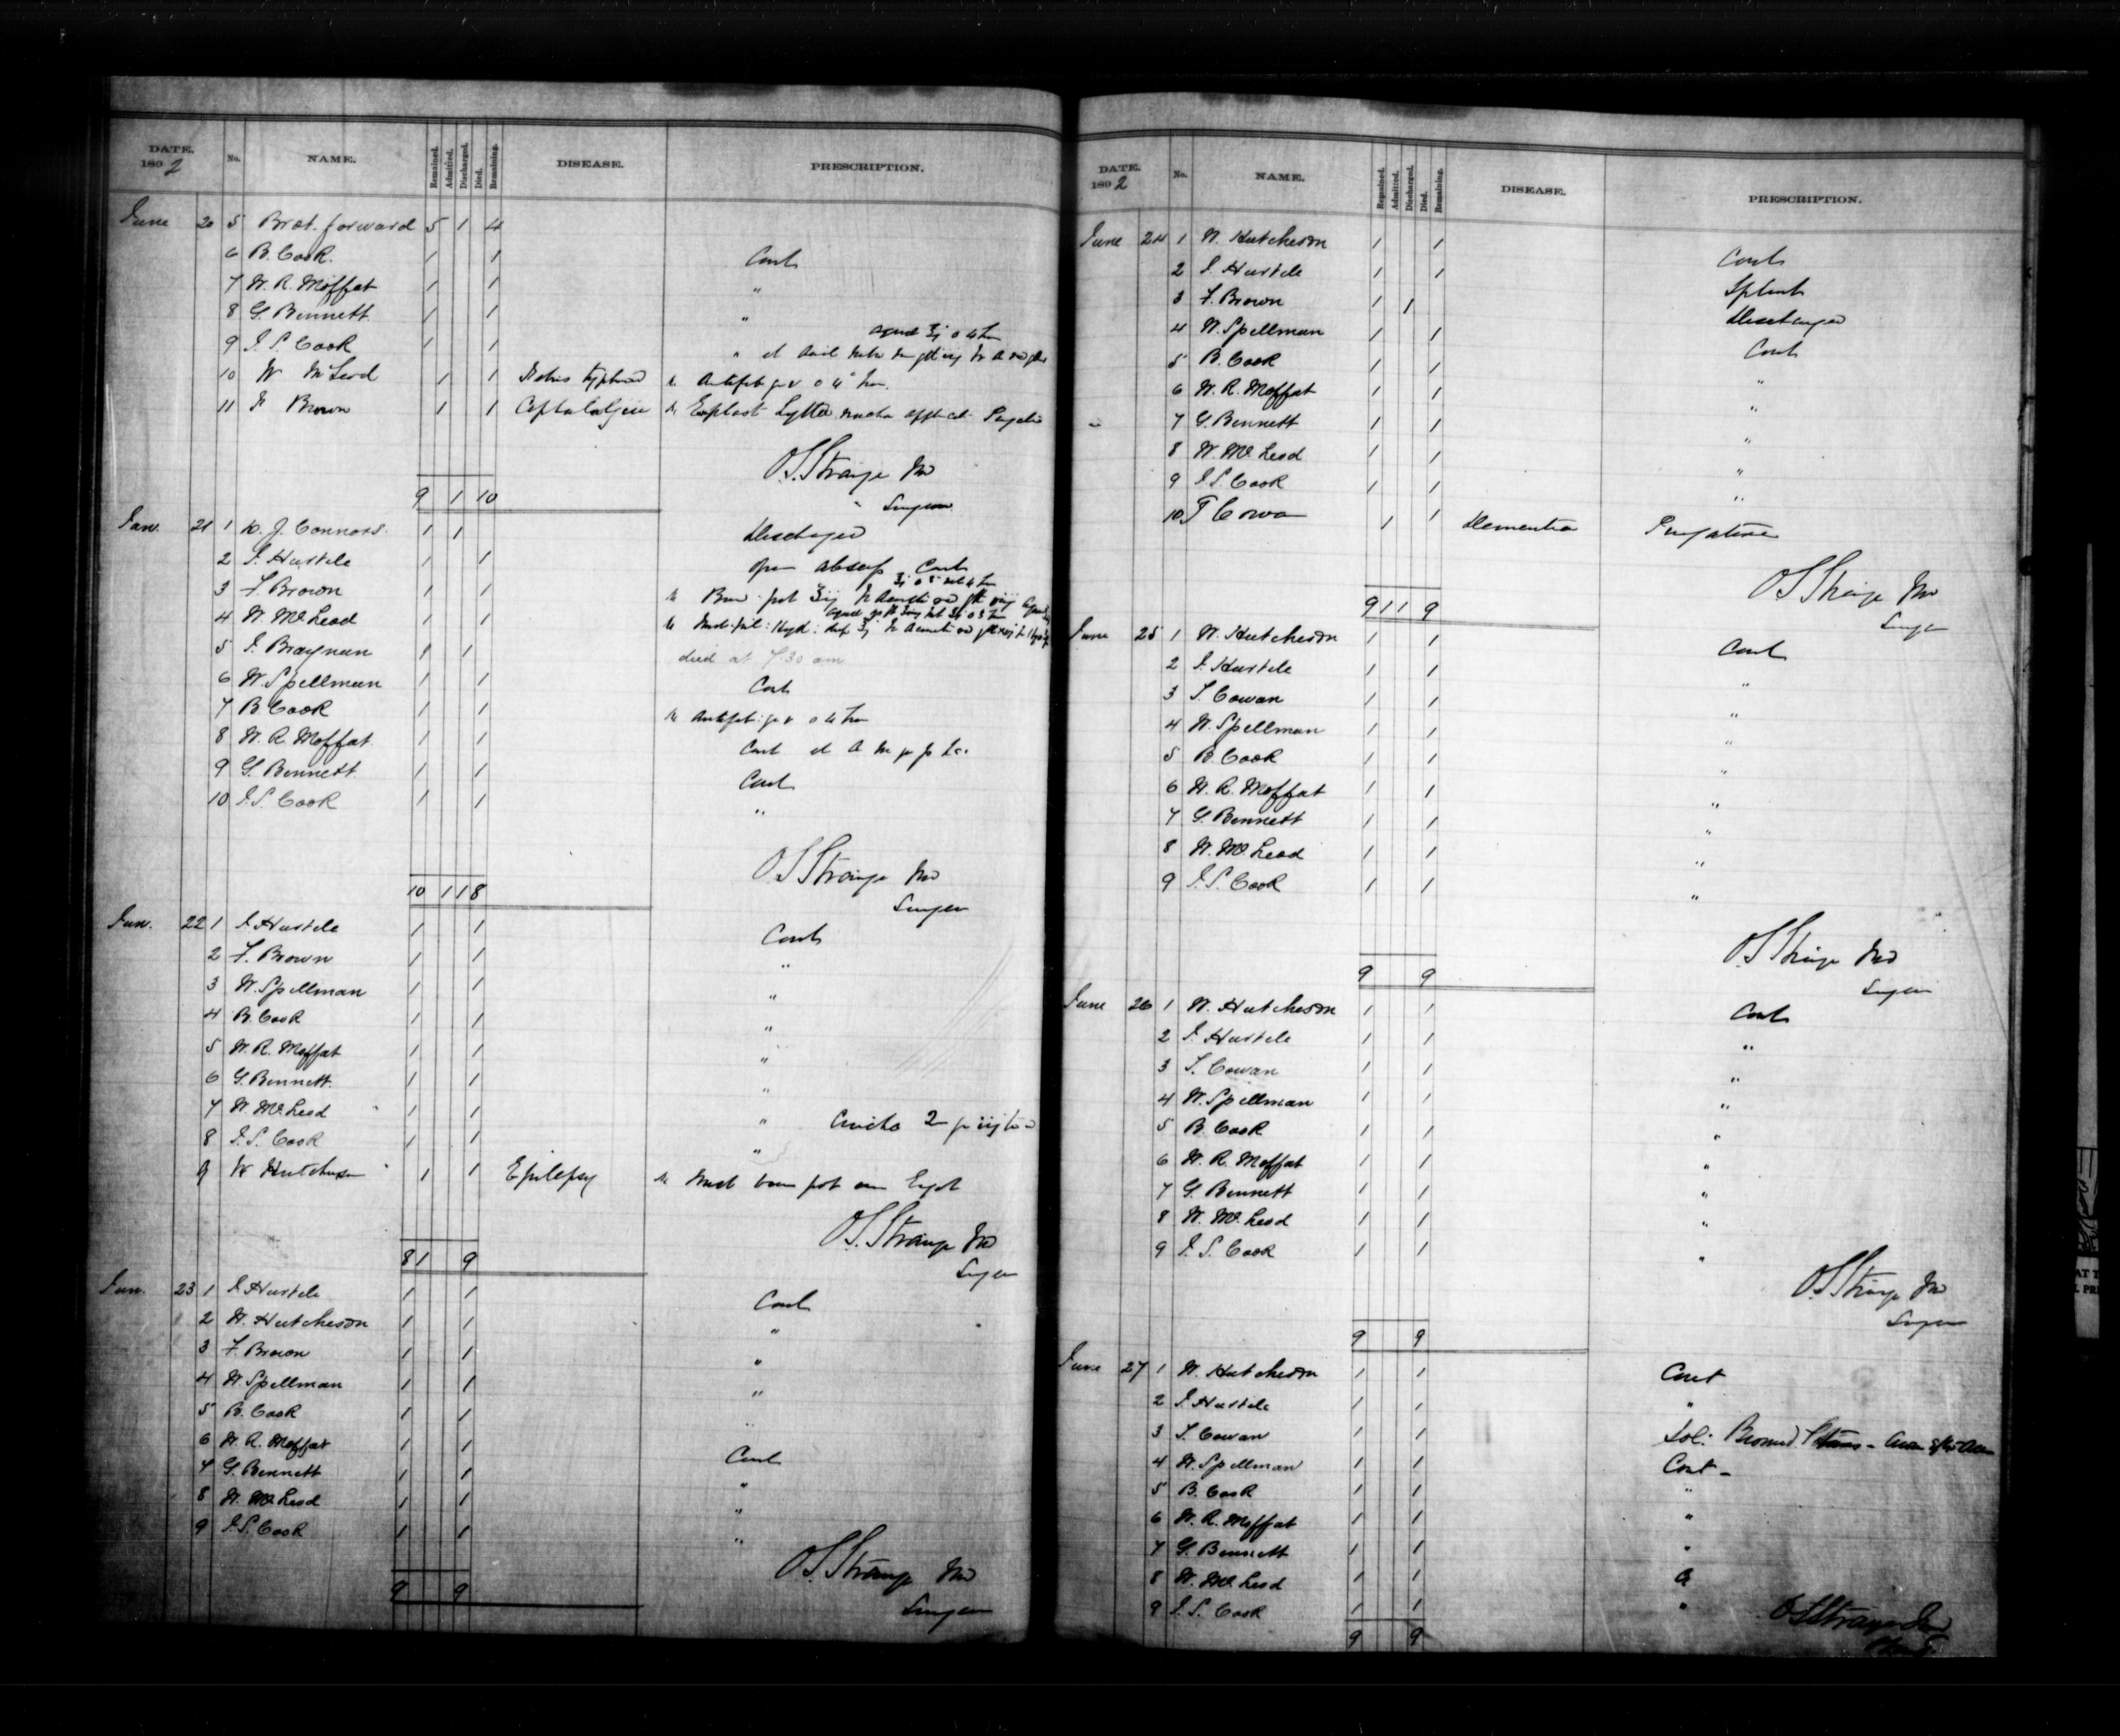 DATE. 1892 No. NAME. Remained. Admitted. Discharged. Died. Remaining. DISEASE. PRESCRIPTION.
June 20 5 Brot. forward 5 1 4
6 B. Cook. 1 1 Cont
7 W. R. Moffat 1 1 "
8 G. Bennett. 1 1 "
9 J. S. Cook 1 1 "
10 W McLeod 1 1
11 F Brown 1 1 Cephalalgia
O. S. Strange MD
Surgeon
9 1 10
Jun. 21 1 W. J. Connors. 1 1 Discharged
2 J. Hustele 1 1 Cont
3 F. Brown 1 1
4 W. McLeod 1 1
5 J. Braynen 1 1 died at 7.30 am
6 W. Spellman 1 1 Cont
7 B. Cook 1 1
8 W. R. Moffat. 1 1 Cont
9 G. Bennett. 1 1 Cont
10 J. S. Cook 1 1 "
O. S. Strange MD
Surgeon
10 1 1 8
Jun. 22 1 J. Hustele 1 1 Cont
2 F. Brown 1 1 "
3 W. Spellman 1 1 "
4 B. Cook 1 1 "
5 W. R. Moffat 1 1 "
6 G. Bennett. 1 1 "
7 W. McLeod 1 1 "
8 J. S. Cook 1 1 "
9 W Hutcheson 1 1 Epilepsy
O. S. Strange MD
Surgeon
8 1 9
Jun. 23 1 J. Hustele 1 1 Cont
2 W. Hutcheson 1 1 "
3 F. Brown 1 1 "
4 W. Spellman 1 1 "
5 B. Cook 1 1 "
6 W. R. Moffat 1 1 Cont
7 G. Bennett 1 1 "
8 W. McLeod 1 1 "
9 J. S. Cook 1 1 "
O. S. Strange MD
Surgeon
9 9
DATE. 1892 No. NAME. Remained. Admitted. Discharged. Died. Remaining. DISEASE. PRESCRIPTION.
June 24 1 W. Hutcheson 1 1 Cont
2 J. Hustele 1 1 Splint
3 F. Brown 1 1 Discharged
4 W. Spellman 1 1 Cont
5 B. Cook 1 1 "
6 W. R. Moffat 1 1 "
7 G. Bennett 1 1 "
8 W. McLeod 1 1 "
9 J. S. Cook 1 1 "
10 T Cowan 1 1 Dementia Purgative
O. S. Strange MD
Surgeon
9 1 1 9
June 25 1 W. Hutcheson 1 1 Cont
2 J. Hustele 1 1 "
3 T. Cowan 1 1 "
4 W. Spellman 1 1 "
5 B. Cook 1 1 "
6 W. R. Moffat 1 1 "
7 G. Bennett 1 1 "
8 W. McLeod 1 1 "
9 J. S. Cook 1 1 "
O. S. Strange MD
Surgeon
9 9
June 26 1 W. Hutcheson 1 1 Cont
2 J. Hustele 1 1 "
3 T. Cowan 1 1 "
4 W. Spellman 1 1 "
5 B. Cook 1 1 "
6 W. R. Moffat 1 1 "
7 G. Bennett 1 1 "
8 W. McLeod 1 1 "
9 J. S. Cook 1 1 "
O. S. Strange MD
Surgeon
9 9
June 27 1 W. Hutcheson 1 1 Cont
2 J. Hustele 1 1 "
3 T. Cowan 1 1 Sol:
4 W. Spellman 1 1 Cont -
5 B. Cook 1 1 "
6 W. R. Moffat 1 1 "
7 G. Bennett 1 1 "
8 W. McLeod 1 1
9 J. S. Cook 1 1 "
O S Strange MD
9 9